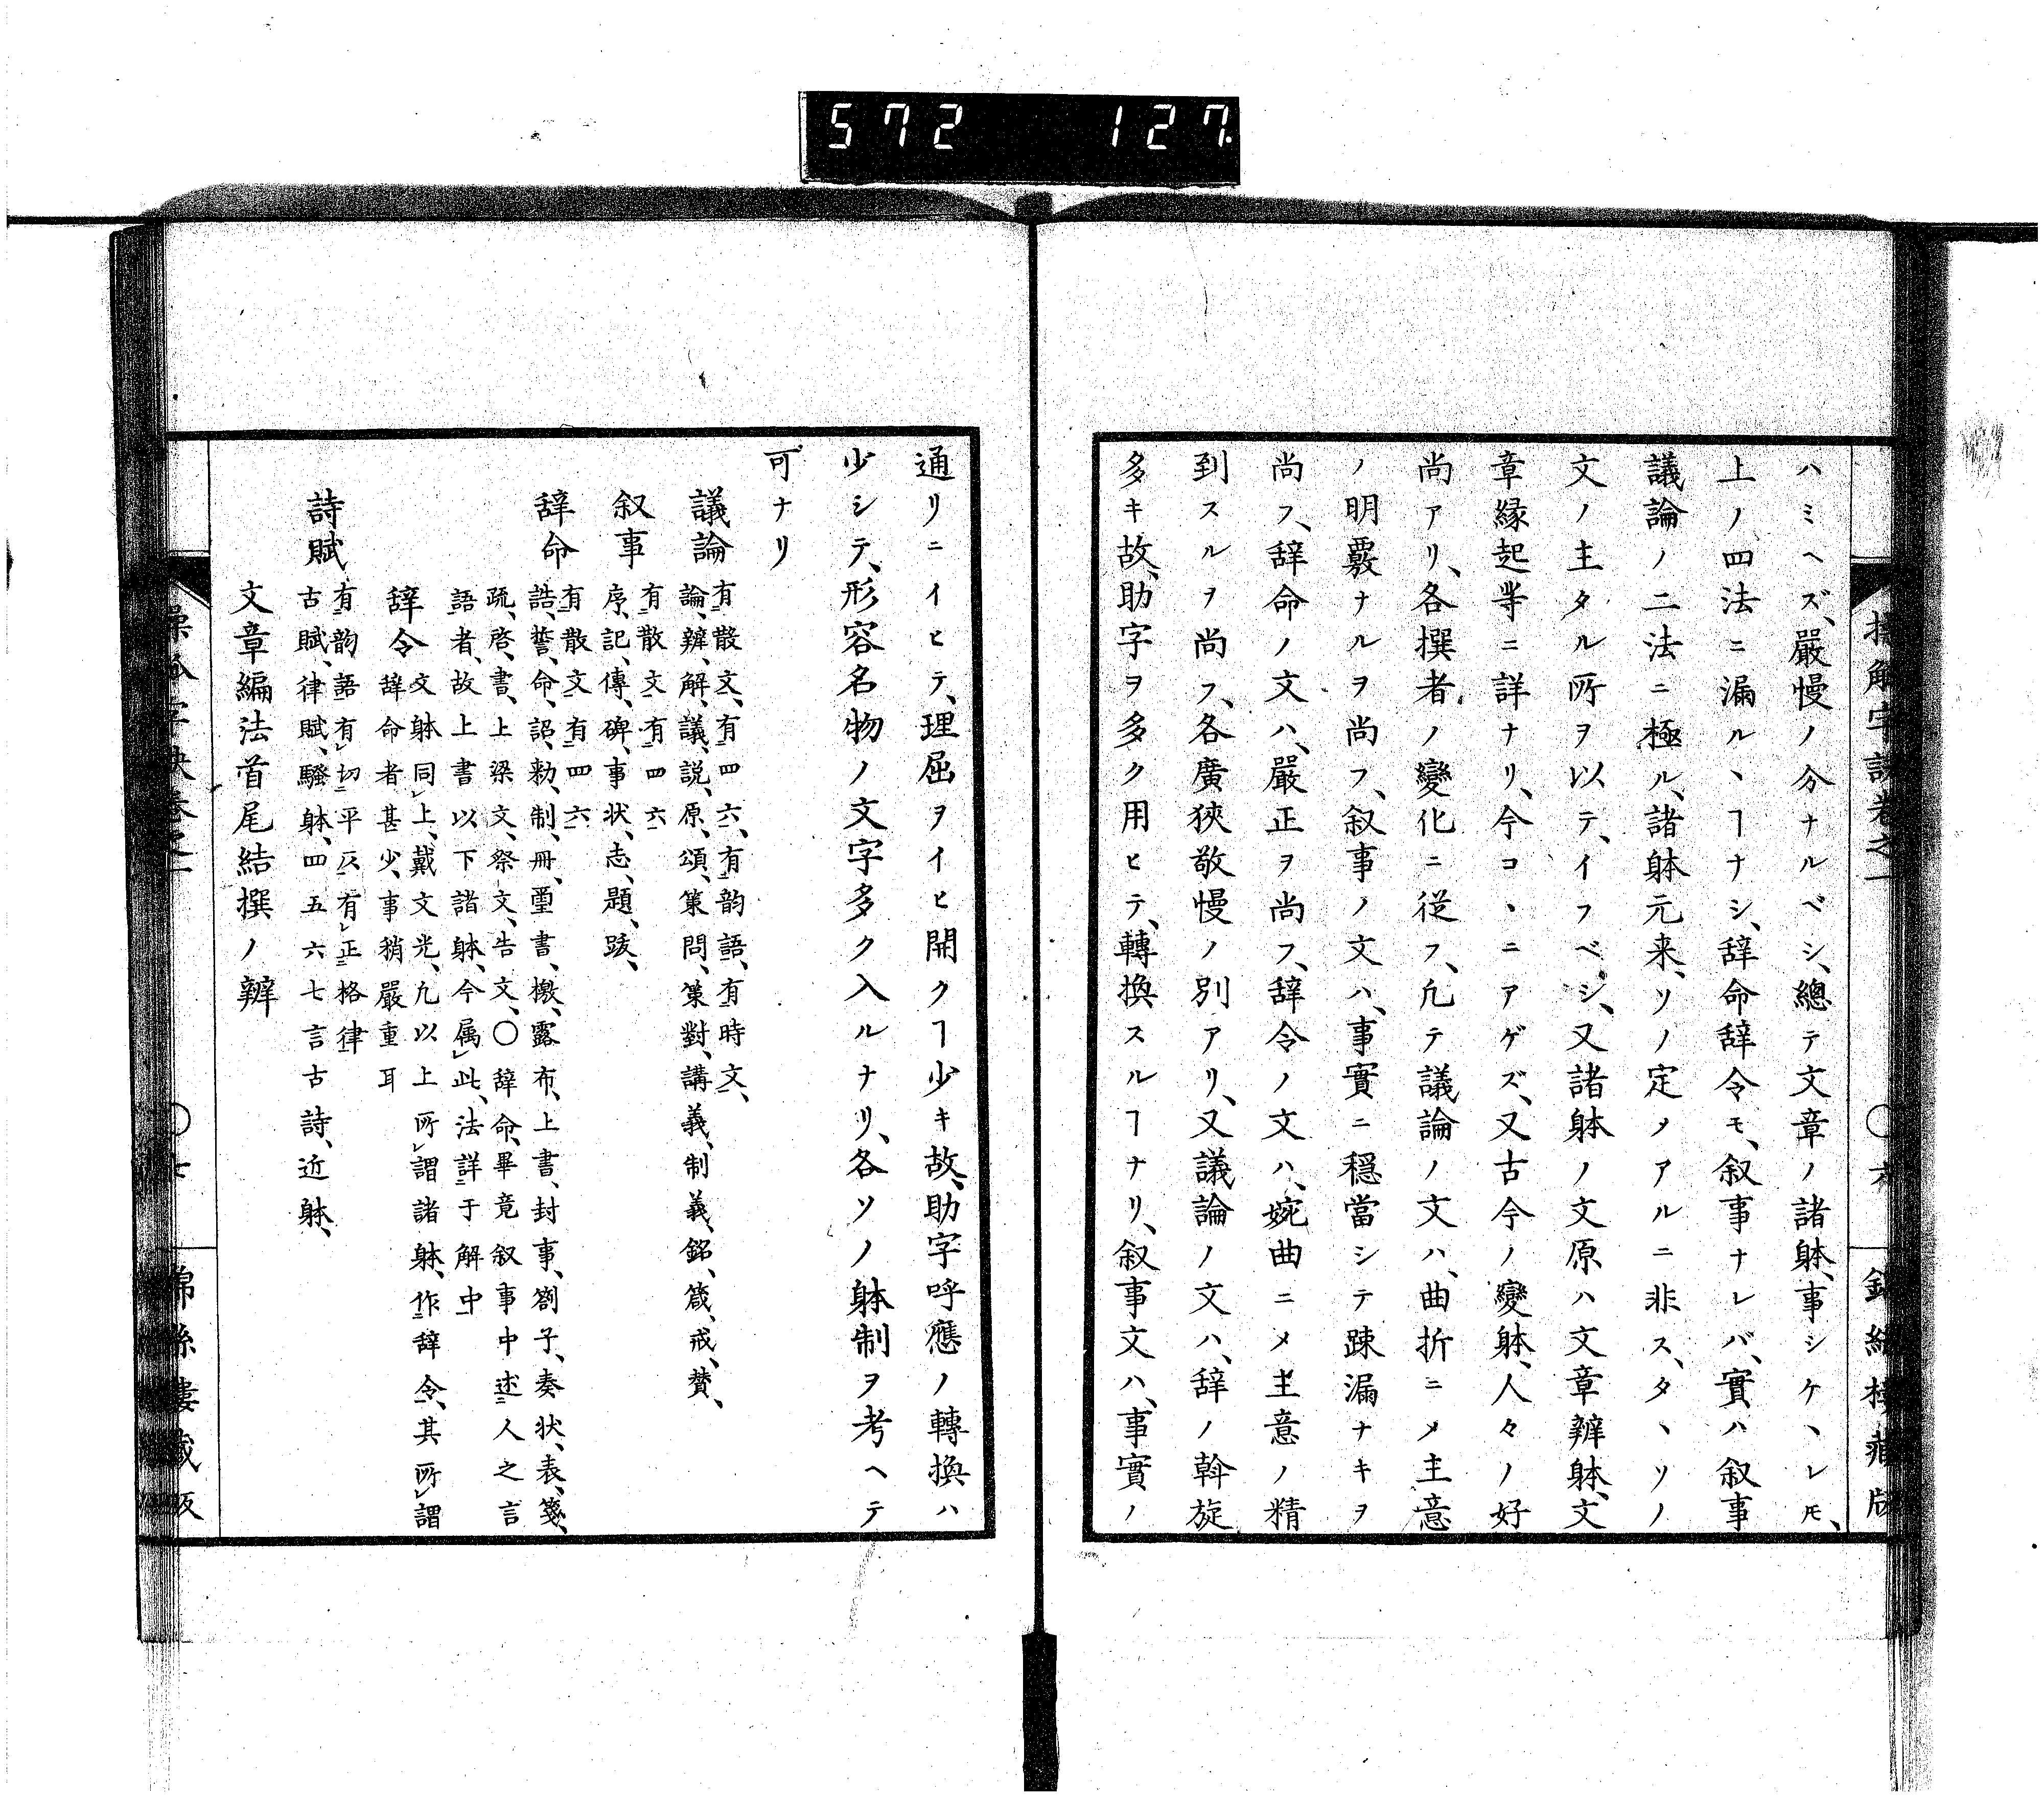 572 127
ハミヘズ、嚴慢ノ分ナルベシ、總テ文章ノ諸躰、事シケヽレ𪜈、
上ノ四法ニ漏ルヽヿナシ、辞命辞令モ、叙事ナレバ、實ハ叙事
議論ノ二法ニ極ル、諸躰元来、ソノ定メアルニ非ス、タヽソノ
文ノ主タル所ヲ以テ、イフベシ、又諸躰ノ文原ハ文章辨躰、文
章縁起等ニ詳ナリ、今コヽニアゲズ、又古今ノ變躰、人々ノ好
尚アリ、各撰者ノ變化ニ従フ、凢テ議論ノ文ハ、曲折ニメ主意
ノ明覈ナルヲ尚フ、叙事ノ文ハ、事實ニ穏當シテ踈漏ナキヲ
尚フ、辞命ノ文ハ、嚴正ヲ尚フ、辞令ノ文ハ、婉曲ニメ主意ノ精
到スルヲ尚フ、各廣狹敬慢ノ別アリ、又議論ノ文ハ、辞ノ斡旋
多キ故、助字ヲ多ク用ヒテ、轉換スルヿナリ、叙事文ハ、事實ノ
通リニイヒテ、理屈ヲイヒ開クヿ少キ故、助字呼應ノ轉換ハ
少シテ、形容名物ノ文字多ク入ルナリ、各ソノ躰制ヲ考ヘテ
可ナリ
議論 有散文、有四六、有韵語、有時文、
論、辨、解、議、説、原、頌、策問、策對、講義、制義、銘、箴、戒、賛、
叙事 有散文有四六
序、記、傳、碑、事状、志、題、跋、
辞命 有散文有四六
誥、誓、命、詔、勅、制、冊、璽書、檄、露布、上書、封事、劄子、奏状、表、箋、
疏、啓、書、上梁文、祭文、告文、〇辞命、畢竟叙事中述人之言
語者、故上書以下諸躰、今属此、法詳于解中
辞令 文躰同上、戴文光、凢以上所謂諸躰、作辞令、其所謂
辞命者甚少、事稍嚴重耳
詩賦 有韵語有切平仄有正格律
古賦、律賦、騷躰、四五六七言古詩、近躰、
文章編法首尾結撰ノ辨